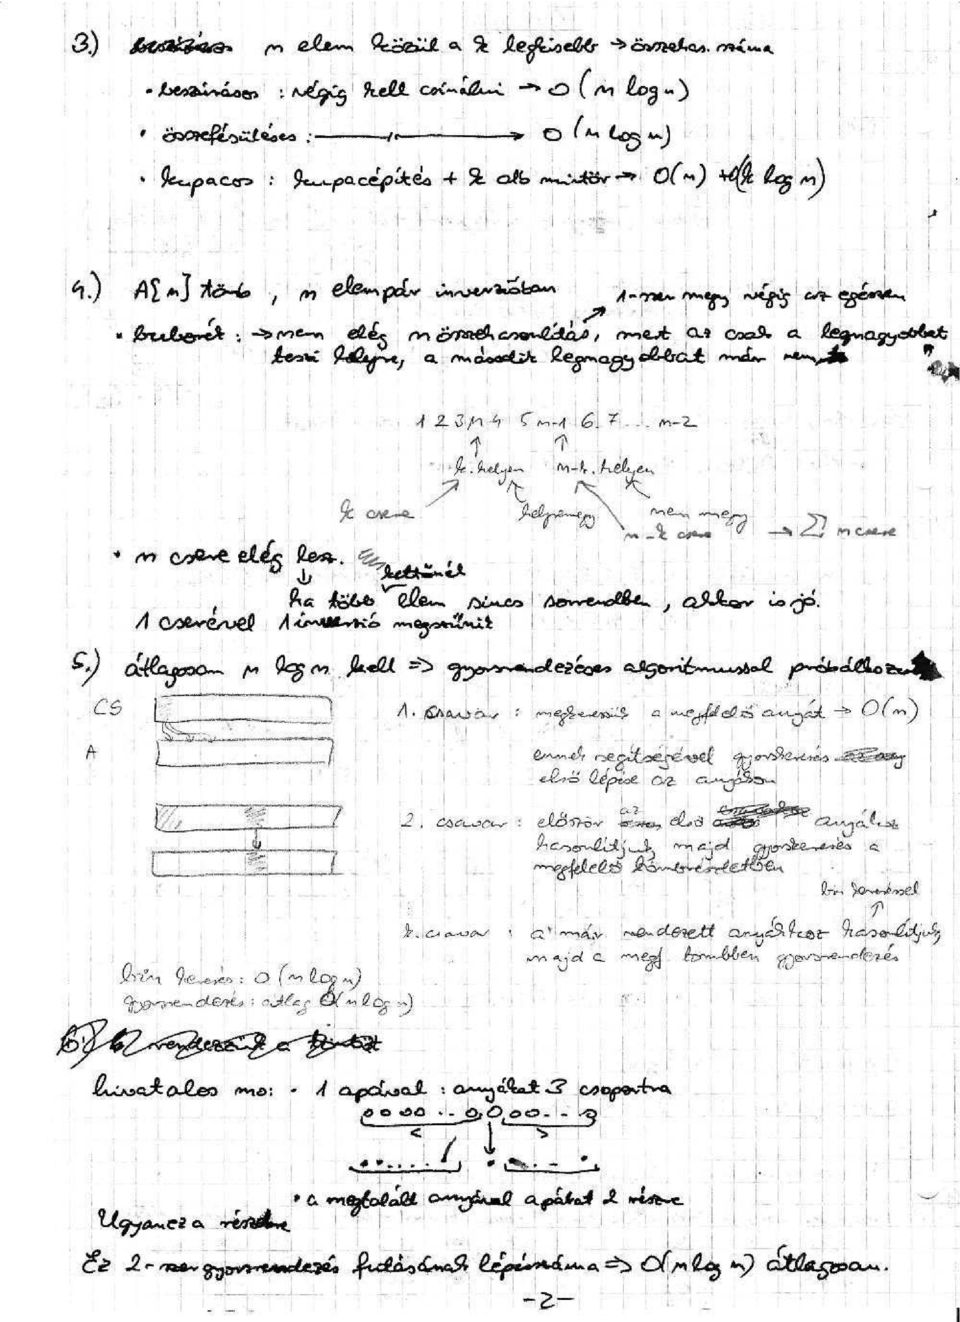 3.) n elem közül a k legkisebb → összehas. száma
• beszúrásos : végig kell csinálni → O(n log n)
• összefésüléses : ——〃——→ O(n log n)
• kupacos : kupacépítés + k db mintör → O(n) + O(k log n)
4.) A[n] tömb , n elempár inverzióban
1-szer megy végig az egészen
• buborék : → nem elég n összehasonlítás, mert az csak a legnagyobbat
teszi helyre, a második legnagyobbat már nem
1 2 3 n 4 5 n-1 6 7 ... n-2
k. helyen n-k. helyen
k csere helyremegy nem megy
n-k csere → ∑ n csere
• n csere elég lesz.
kettőnél
ha több elem sincs sorrendben, akkor is jó.
1 cserével 1 inverzió megszűnik
5.) átlagosan n log n kell => gyorsrendezéses algoritmussal
CS
A
1. csavar : megkeressük a megfelelő anyát → O(n)
ennek segítségével gyorskeresés
első lépése az anyákon
2. csavar : először az első anyához
hasonlítjuk, majd gyorskeresés a
megfelelő tömbrészletben
bin kereséssel
k. csavar : a már rendezett anyákhoz hasonlítjuk,
majd a megf. tömbben gyorsrendezés
bin keresés : O(n log n)
gyorsrendezés : átlag O(n log n)
hivatalos mo: • 1 apával : anyákat 3 csoportra
< >
• a megtalált anyával apákat 2 részre
Ugyanez a részekre
Ez 2-szer gyorsrendezés futásának lépésszáma => O(n log n) átlagosan.
-2-